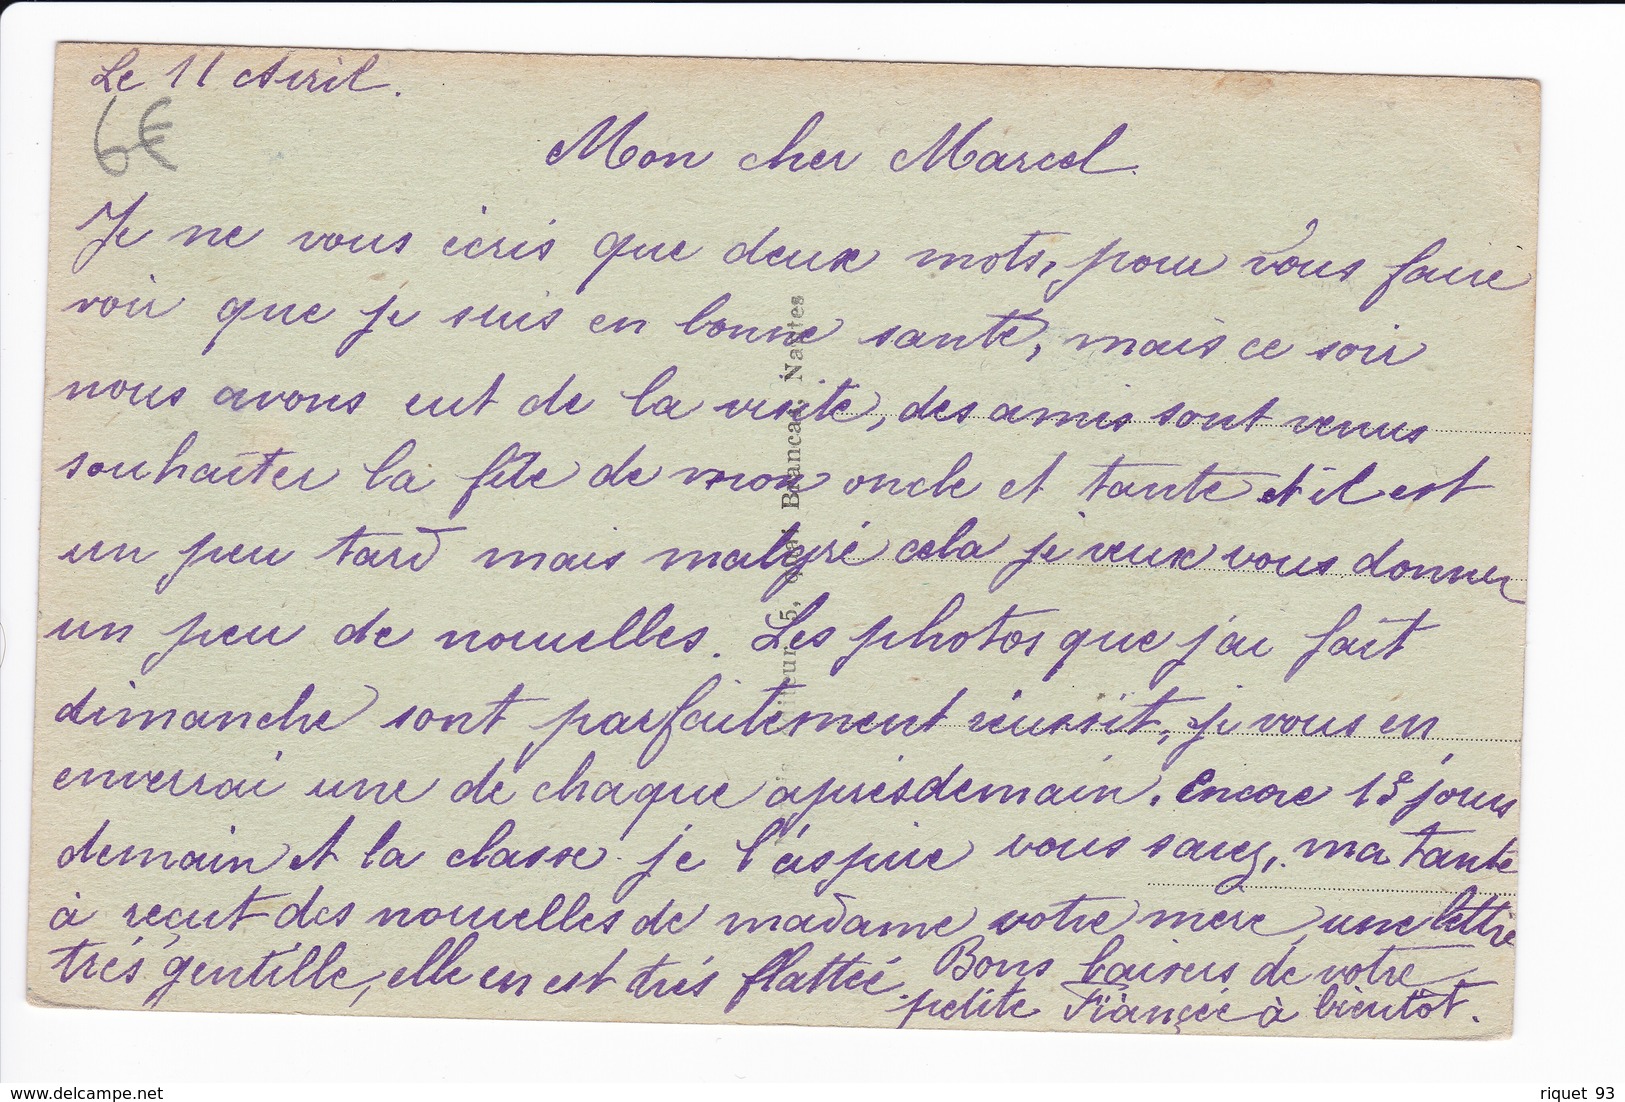 Le 11 Avril.
6€
Mon cher Marcel.
Je ne vous écris que deux mots, pour vous faire
voir que je suis en bonne santé, mais ce soir
nous avons eut de la visite, des amis sont venus
souhaiter la fête de mon oncle et tante et il est
un peu tard mais malgré cela je veux vous donner
un peu de nouvelles. Les photos que j'ai fait
dimanche sont parfaitement réussit, je vous en
enverrai une de chaque aprèsdemain. encore 15 jours
demain et la classe. je l'éspire vous savez, ma tante
à reçut des nouvelles de madame votre mere, une lettre
trés gentille, elle en est trés flattée. Bons baisers de votre
petite Fiançée à bientot.
5, quai Brancas, Nantes
riquet 93